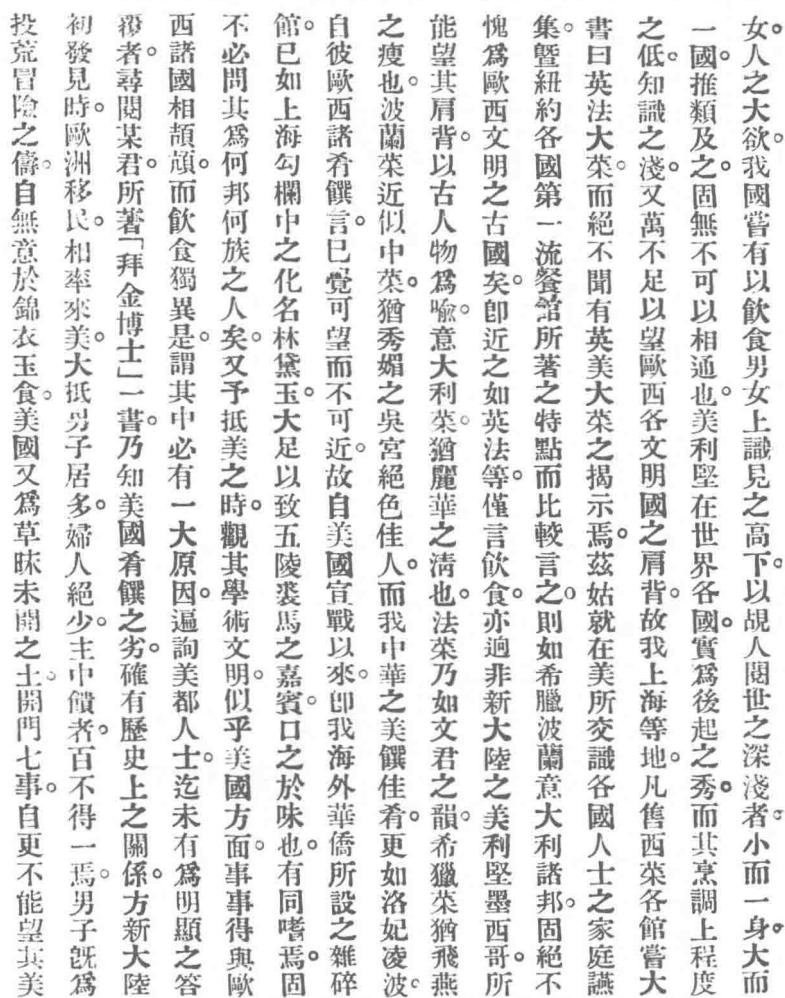 女。人之大欲。我國嘗有以飲食男女上識見之高下。以覘人閱世之深淺者。小而一身。大而
一國。推類及之。固無不可以相通也。美利堅在世界各國。實爲後起之秀。而其烹調上程度
之低。知識之淺。又萬不足以望歐西各文明國之肩背。故我上海等地。凡售西菜各館。嘗大
書曰英法大菜。而絕不聞有英美大菜之揭示焉。茲姑就在美所交識各國人士之家庭讌
集。曁紐約各國第一流餐館所著之特點而比較言之。則如希臘波蘭意大利諸邦。固絕不
愧爲歐西文明之古國矣。卽近之如英法等。僅言飲食。亦逈非新大陸之美利堅墨西哥。所
能望其肩背。以古人物爲喩。意大利菜。猶麗華之淸也。法菜乃如文君之韻。希獵菜猶飛燕
之瘦也。波蘭菜近似中菜。猶秀媚之吳宮絕色佳人。而我中華之美饌佳肴。更如洛妃凌波。
自彼歐西諸肴饌言。已覺可望而不可近。故自美國宣戰以來。卽我海外華僑所設之雜碎
館。已如上海勾欄中之化名林黛玉。大足以致五陵裘馬之嘉賓。口之於味也。有同嗜焉。固
不必問其爲何邦何族之人矣。又予抵美之時。觀其學術文明。似乎美國方面。事事得與歐
西諸國相頡頏。而飲食獨異。是謂其中必有一大原因。遍詢美都人士。迄未有爲明顯之答
覆者。尋閱某君。所著「拜金博士」一書。乃知美國肴饌之劣。確有歷史上之關係。方新大陸
初發見時。歐洲移民。相率來美。大抵男子居多。婦人絕少。主中饋者。百不得一焉。男子旣爲
投荒冒險之儔。自無意於錦衣玉食。美國又爲草昧未開之土。開門七事。自更不能望其美